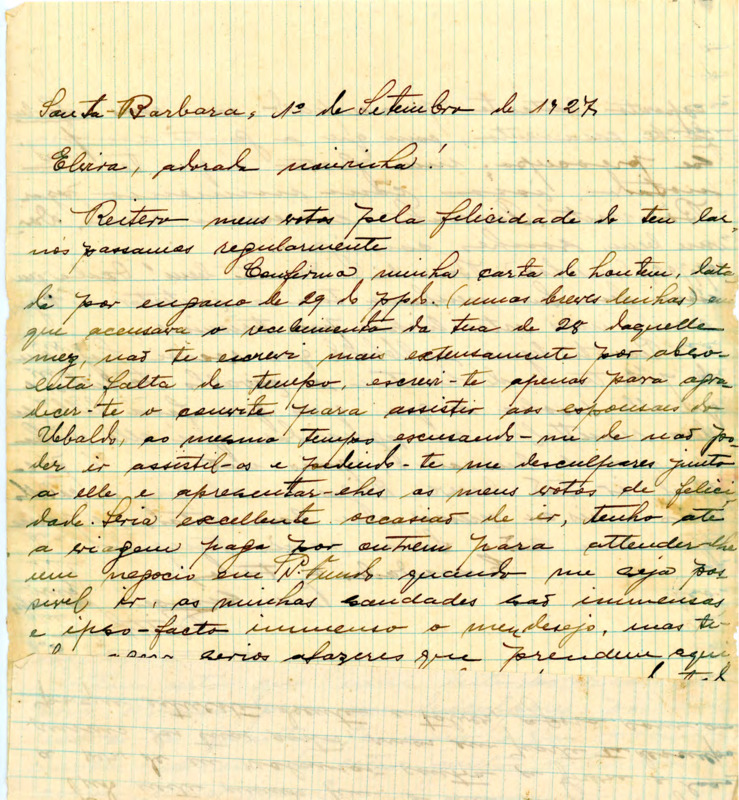 Santa-Barbara, 1º de Setembro de 1927,
Elvira, adorada maninha!
Reitero meus votos pela felicidade do teu lar,
nós passamos regularmente
Confirmo minha carta de hontem, data
da por engano de 29 do ppdo. (umas breves linhas) em
que accusava o recebimento da tua de 28 daquelle
mez, não te escrevi mais extensamente por abso-
luta falta de tempo, escrevi-te apenas para agra
decer-te o convite para assistir aos esponsaes do
Ubaldo, ao mesmo tempo escusando-me de não po-
der ir assistil-os e pedindo-te me desculpares junto
a elle e apresentar-lhes os meus votos de felici
dade. Seria excellente occasião de ir, tenho até
a viagem paga por outrem para attender-lhe
um negocio em P. Fundo quando me seja pos
sivel ir, as minhas saudades são immensas
e ipso-facto immenso o meu desejo, mas te
serios afazeres que prendem aqui